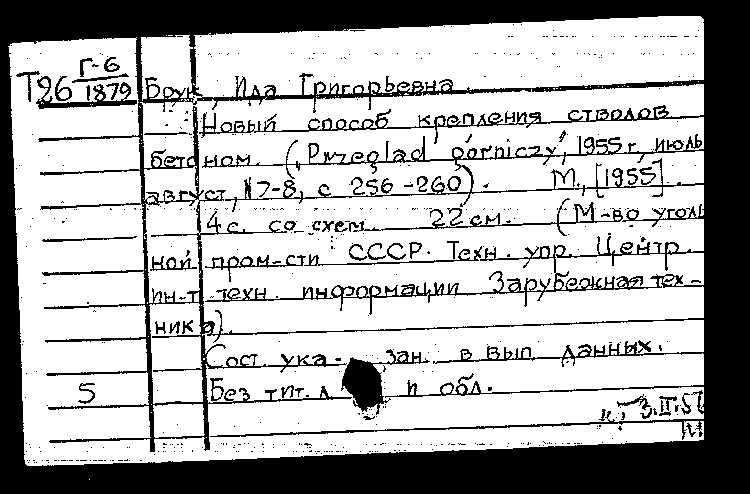 Г-6
Т26 1879 Брук, Ида Григорьевна
Новый способ крепления стволов
бетоном. („Przegląd górniczy", 1955 г, июль
август, №7-8, с 256-260). М., [1955].
4 с. со схем. 22 см. (М-во уголь
ной пром-сти СССР. Техн. упр. Центр.
ин-т техн. информации Зарубежная тех-
ника).
Сост. ука- зан. в вып. данных.
5 Без тит. л и обл.
3.II.57
М